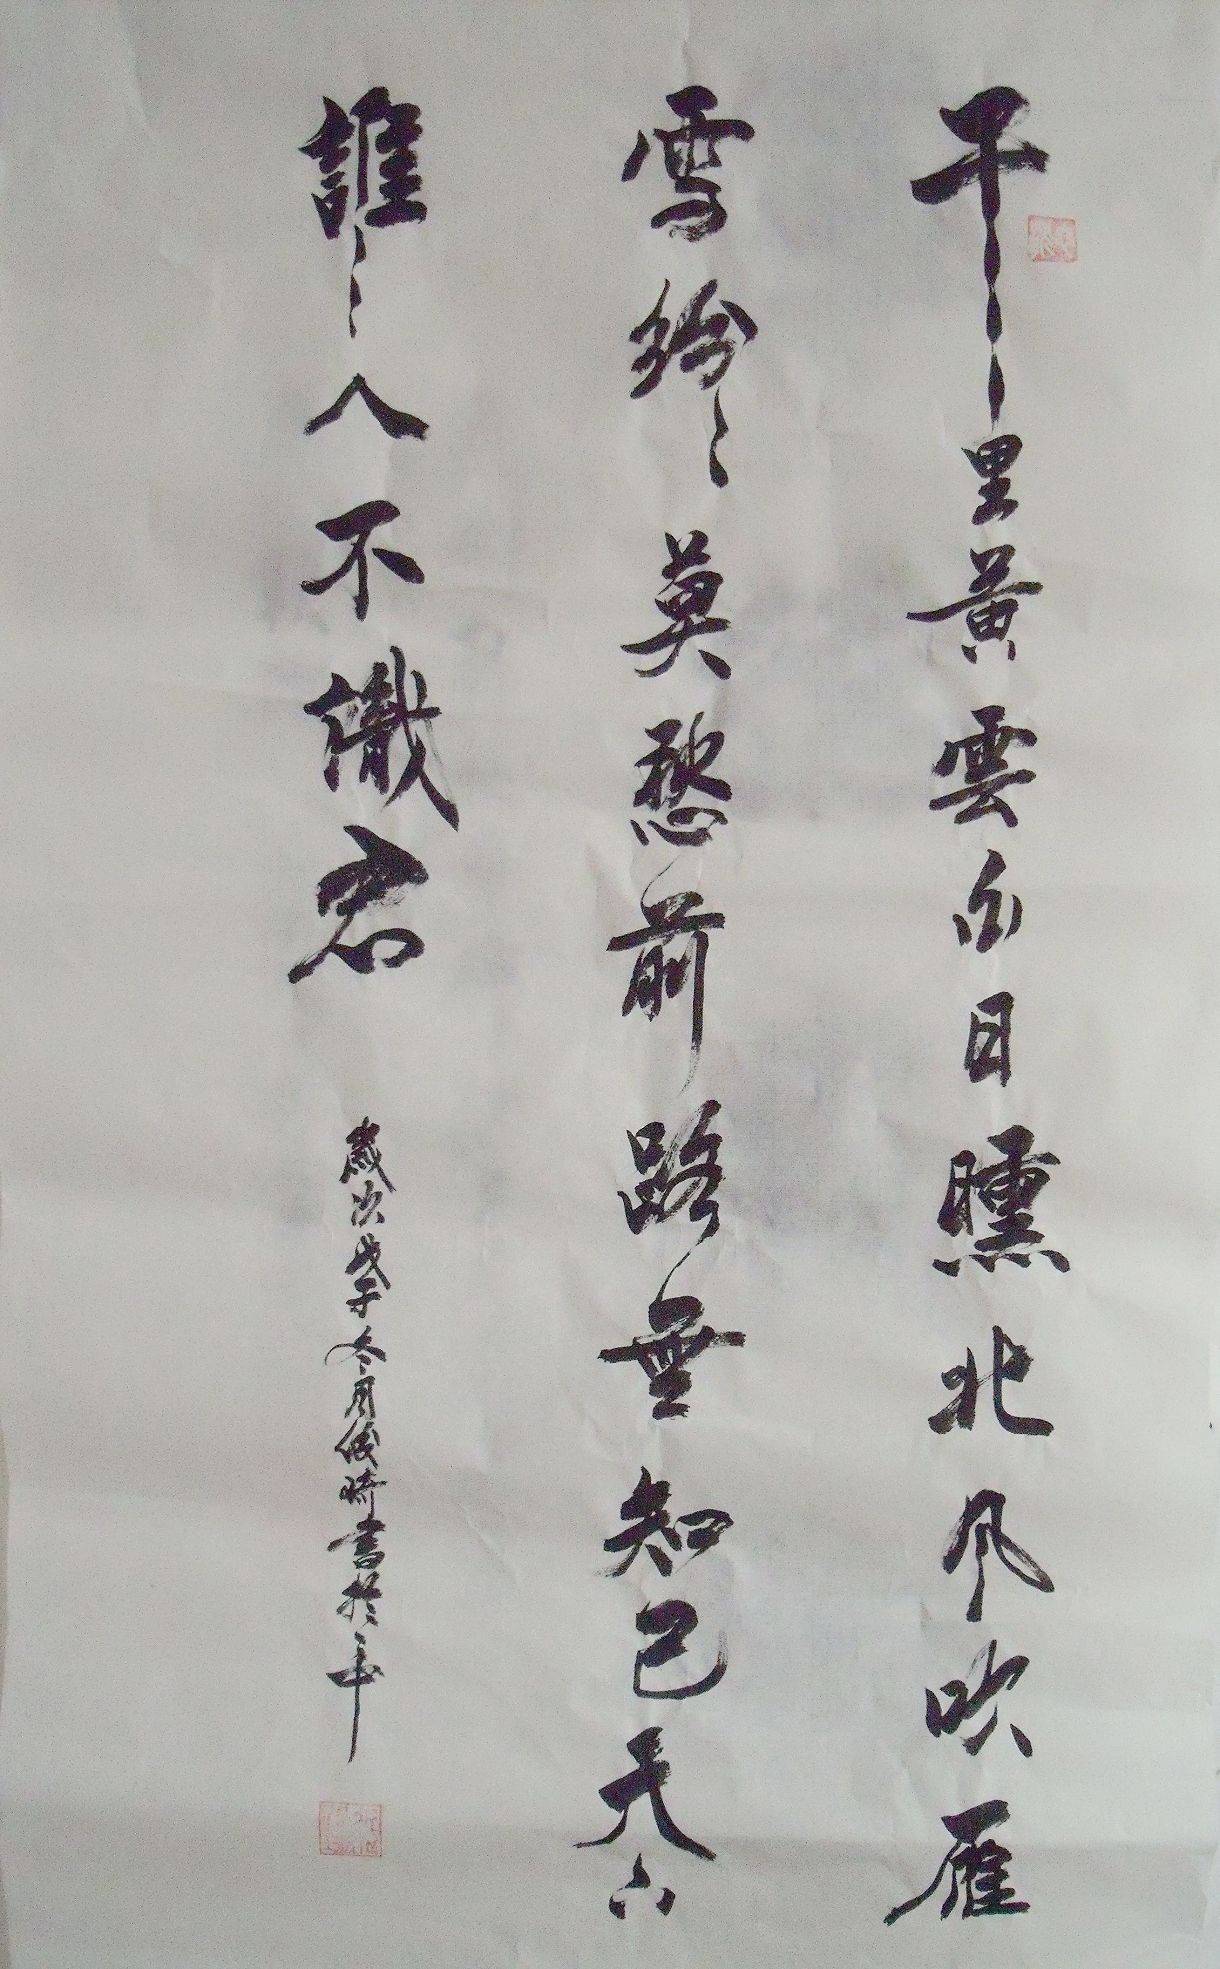 千里黃雲白日曛北风吹雁
雪紛〻莫愁前路無知己天下
誰人不識君
歲次戊子冬月俊琦書於